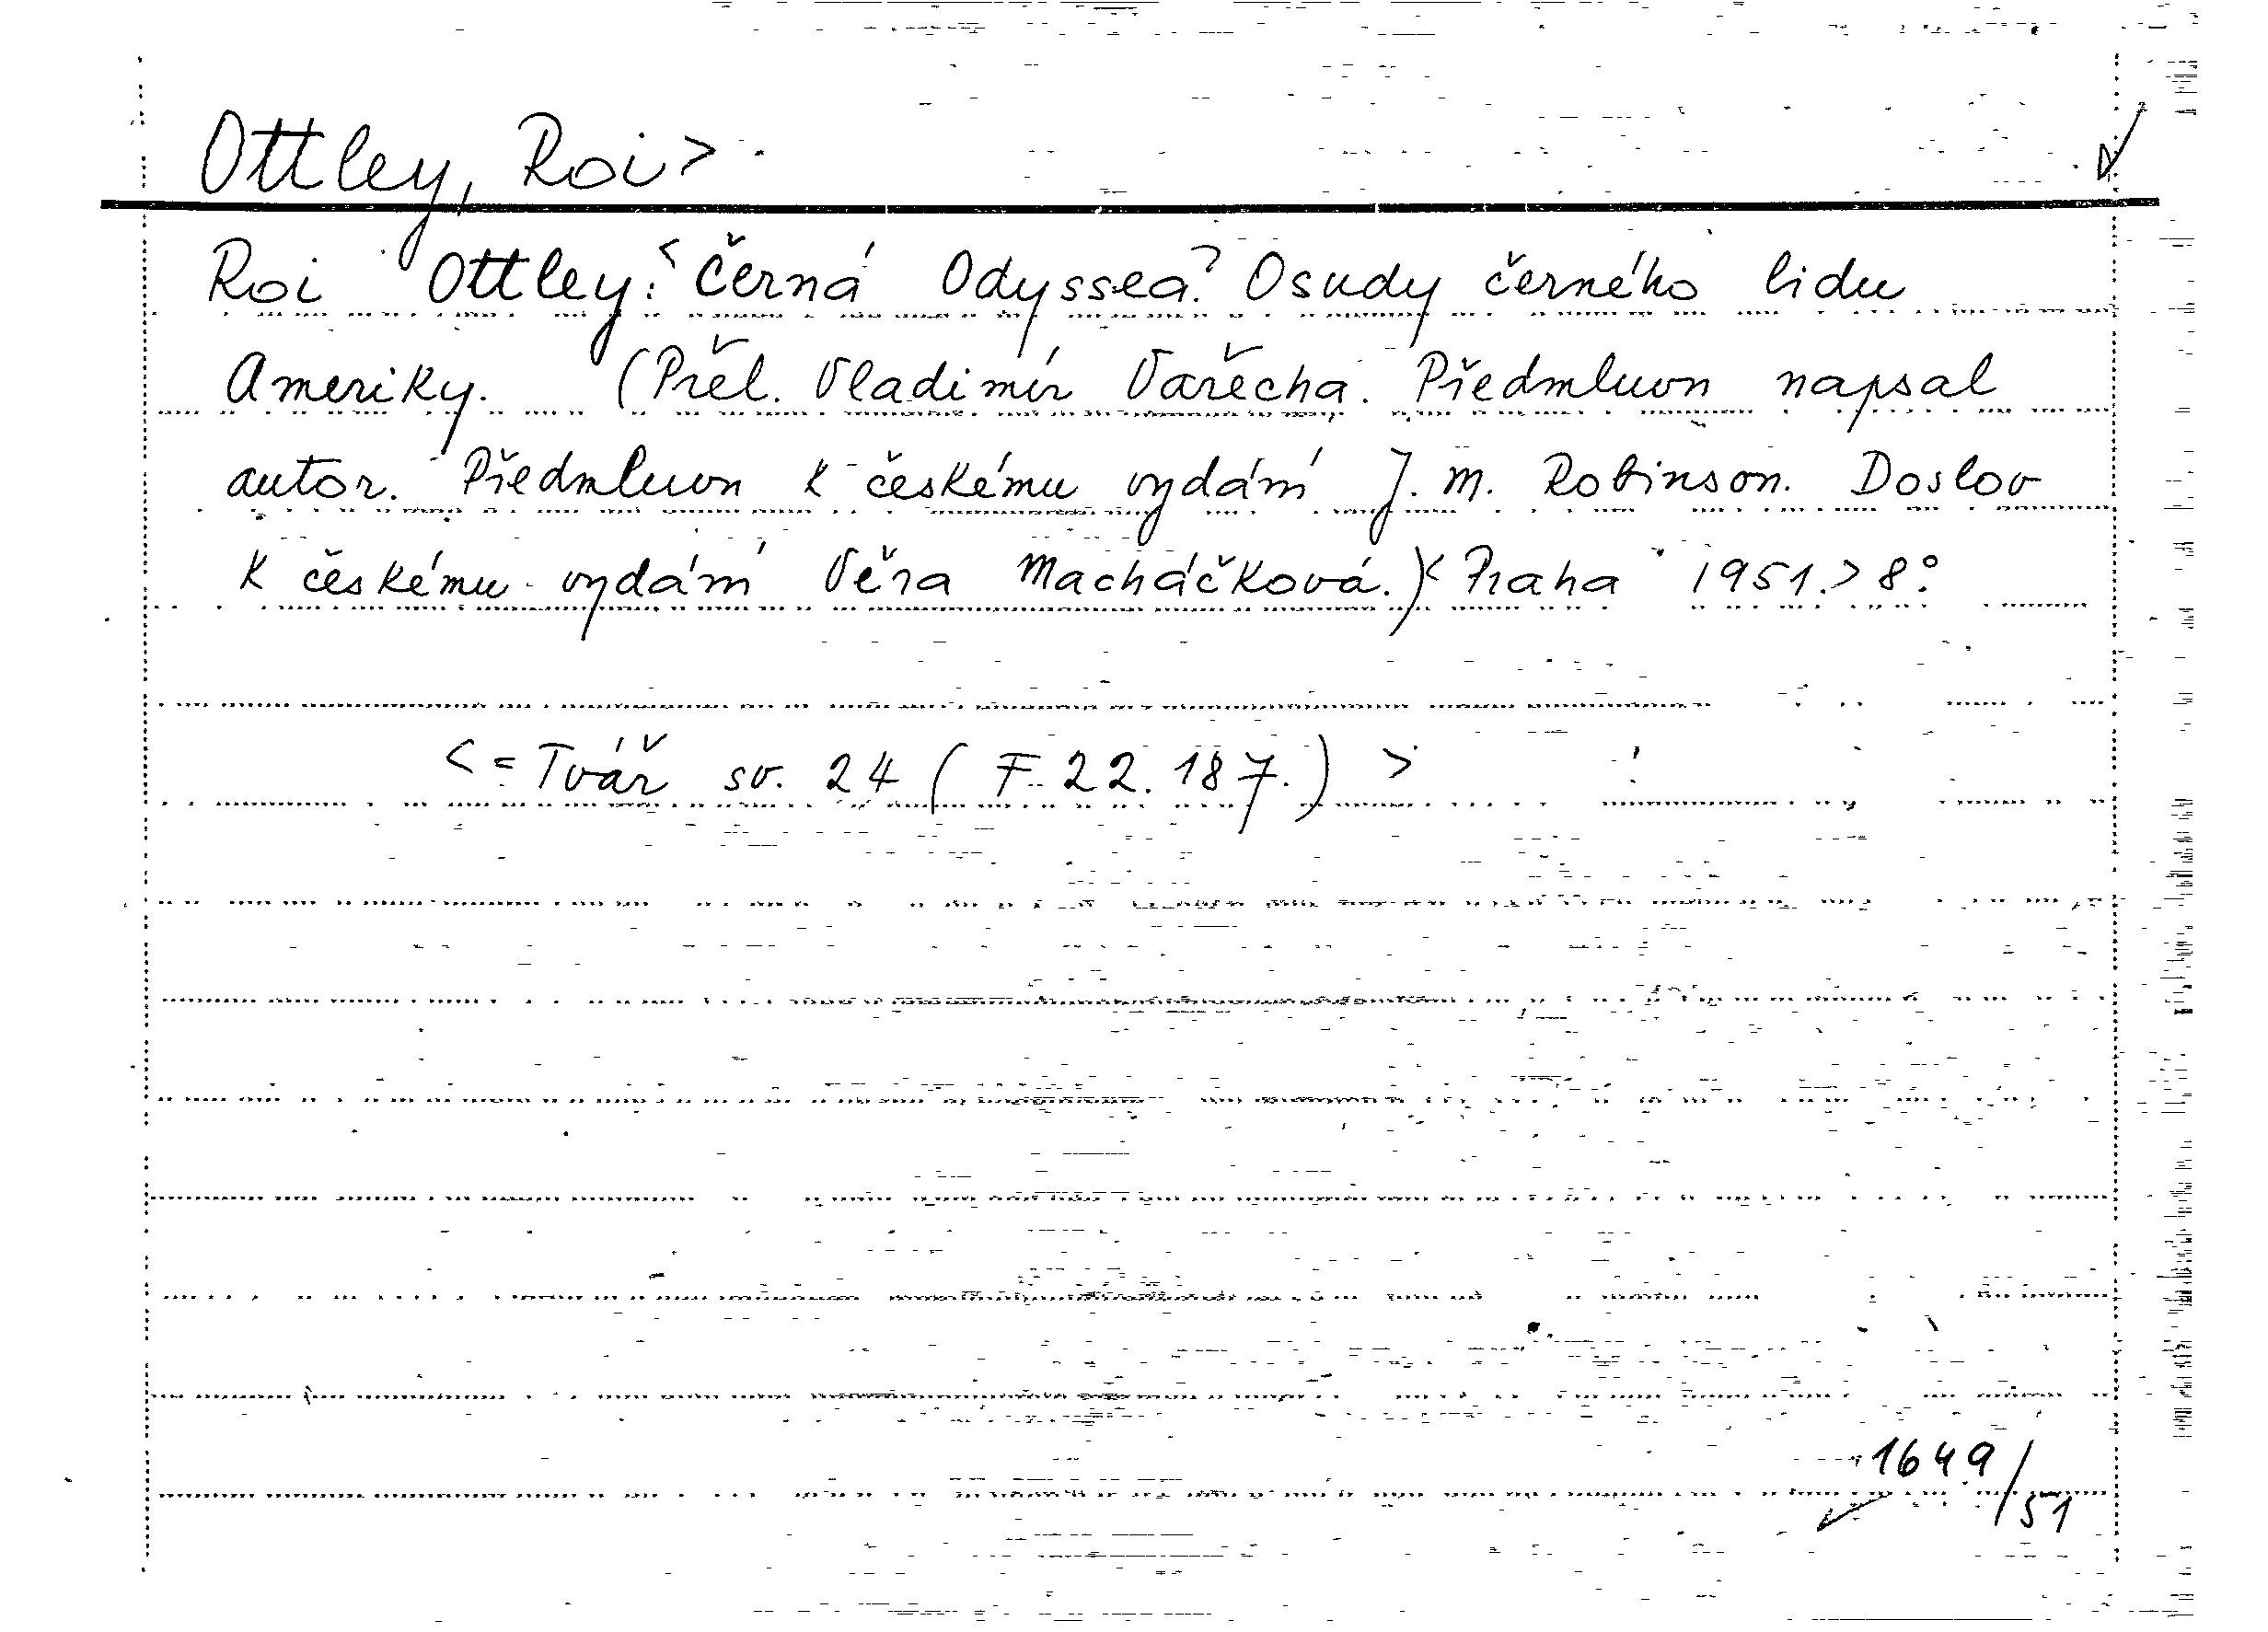 Ottley, Roi>
Roi Ottley: <Černá Odyssea.> Osudy černého lidu
Ameriky. (Přel. Vladimír Vařecha. Předmluvu napsal
autor. Předmluvu k českému vydání J. M. Robinson. Doslov
k českému vydání Věra Macháčková.)< Praha 1951.> 8°.
<=Tvář sv. 24 (F 22.187.) >
1649/51